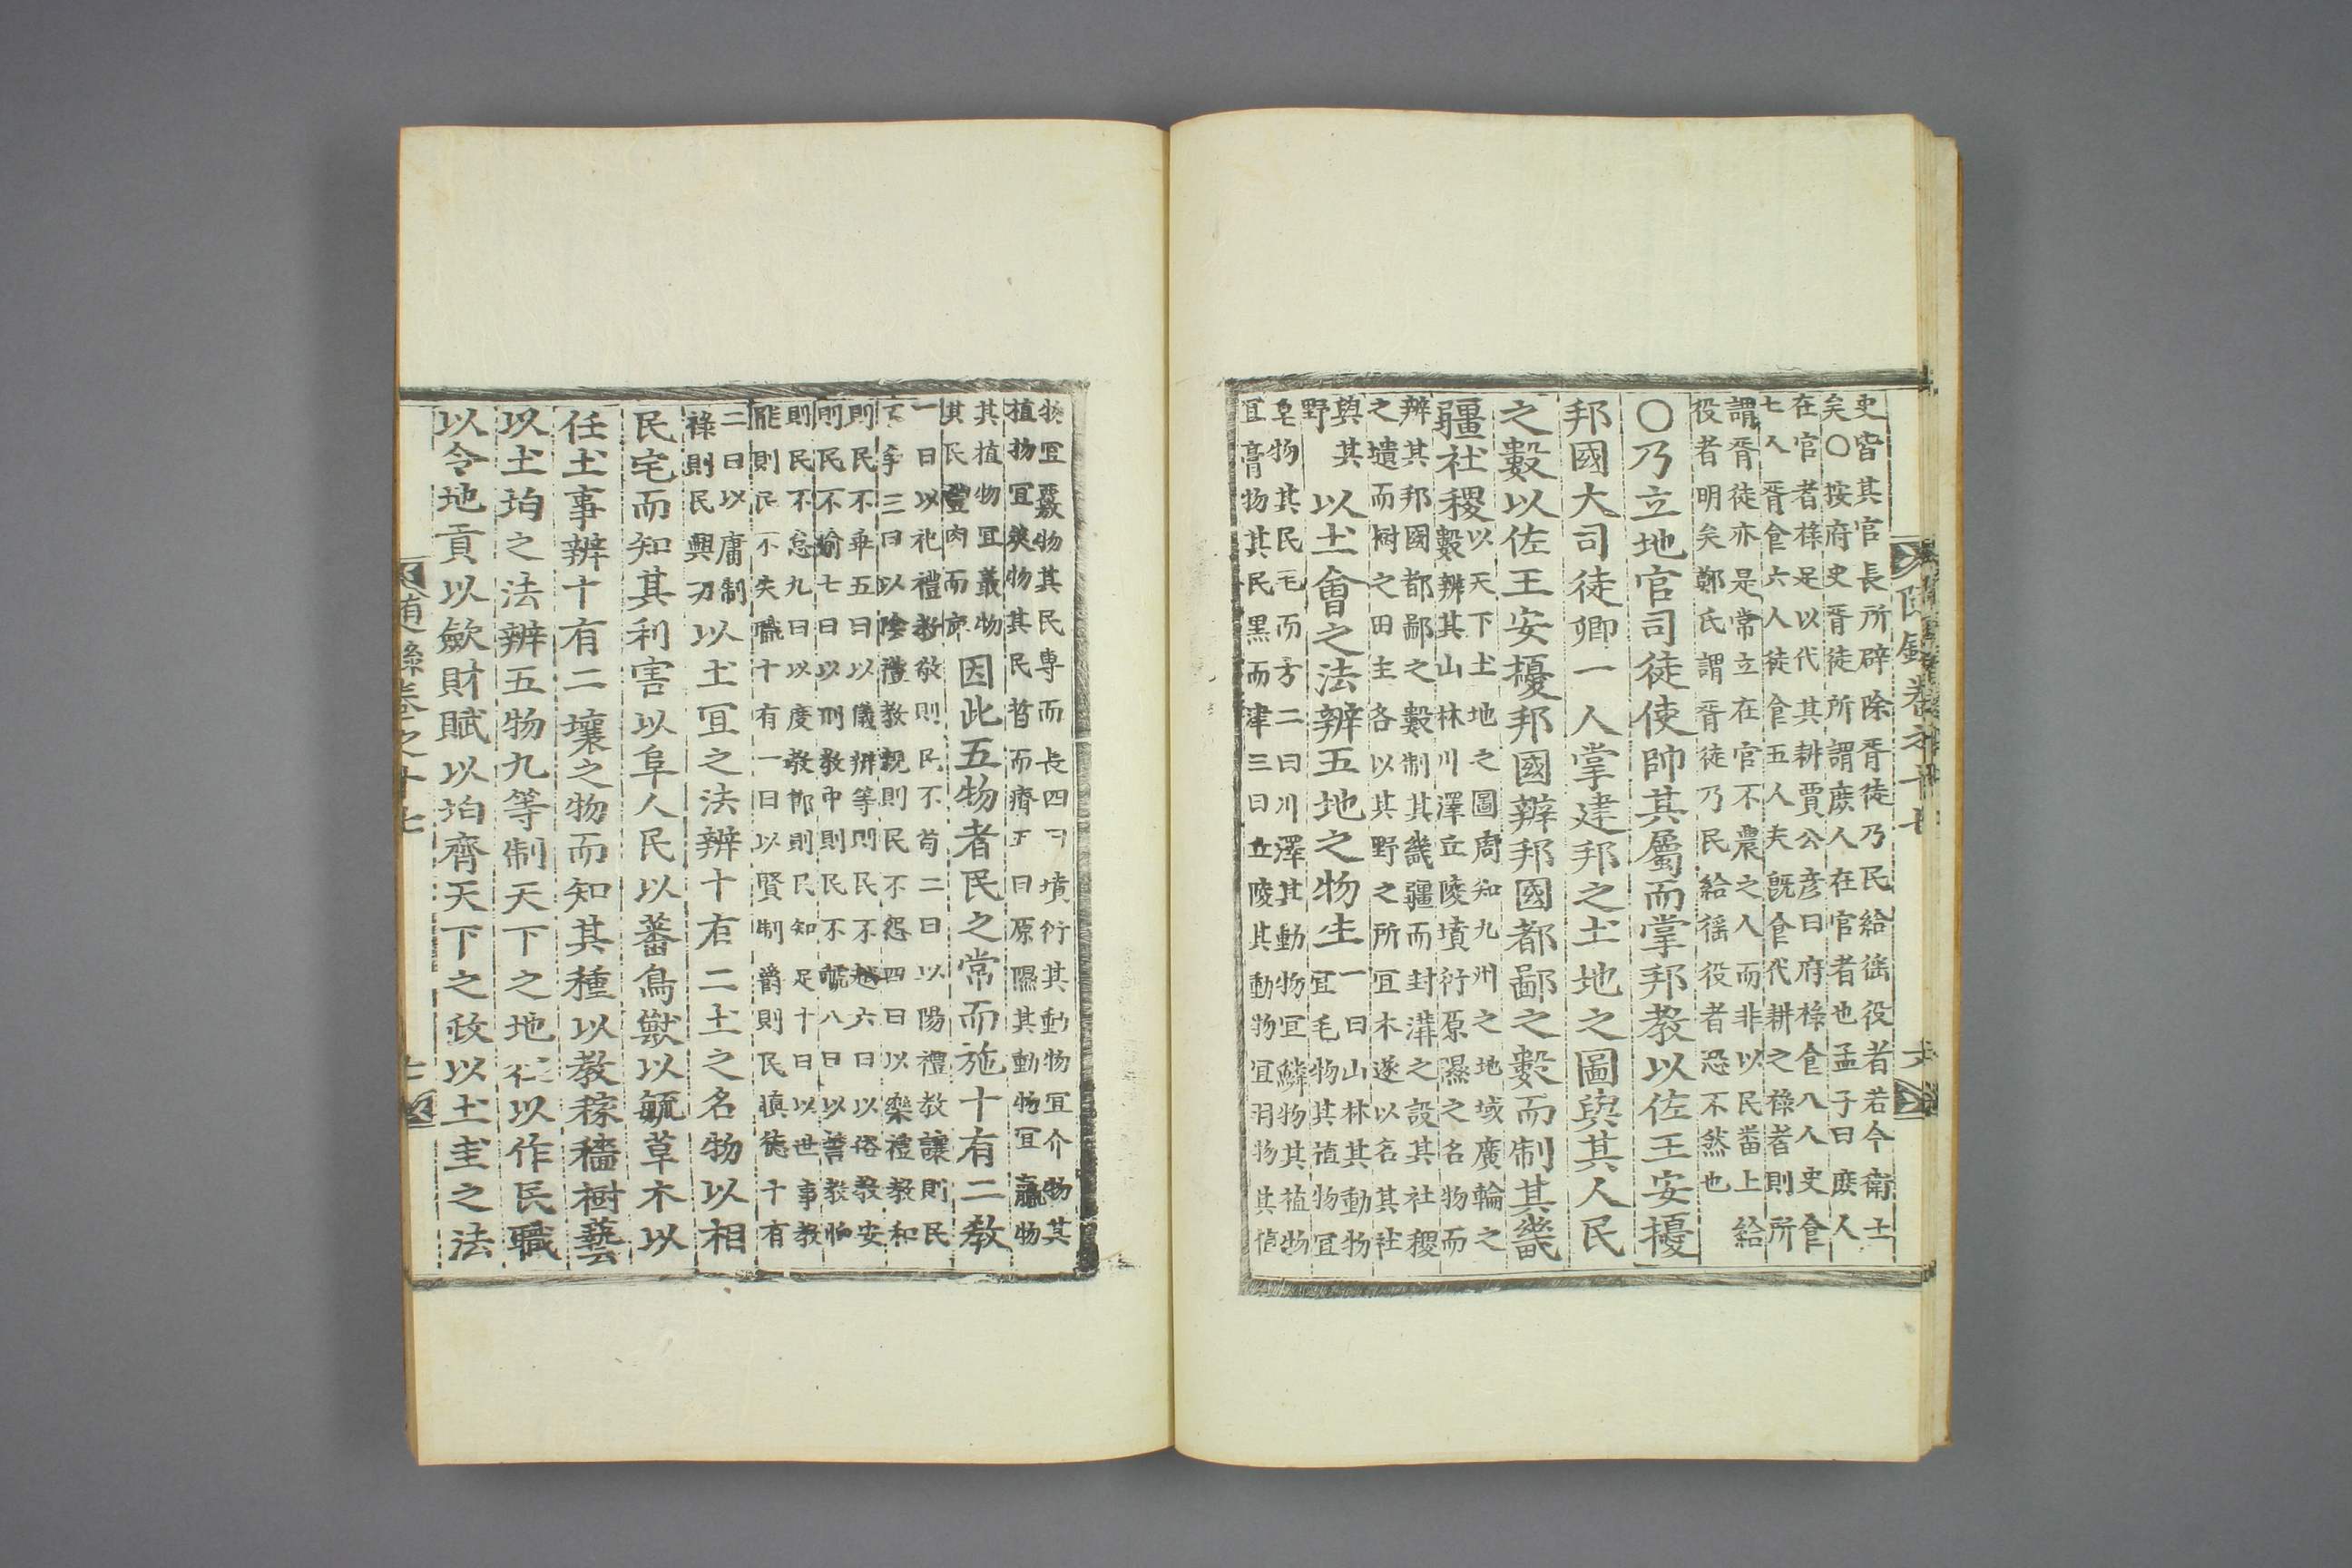 吏皆其官長所辟除胥徒乃民給徭役者若今衛士
矣○按府史胥徒所謂庶人在官者也孟子曰庶人
在官者祿是以代其耕賈公彦曰府祿食八人史食
七人胥食六人徒食五人夫旣食代耕之祿者則所
謂胥徒亦是常立在官不農之人而非以民畨上給
役者明矣鄭氏謂胥徒乃民給徭役者恐不然也
○乃立地官司徒使帥其屬而掌邦敎以佐王安擾
邦國大司徒卿一人掌建邦之土地之圖與其人民
之數以佐王安擾邦國辨邦國都鄙之數而制其畿
疆社稷
以天下土地之圖周知九州之地域廣輪之
數辨其山林川澤丘陵墳衍原濕之名物而
辨其邦國都鄙之數制其畿疆而封溝之設其社稷
之壝而樹之田主各以其野之所宜木遂以名其社
與其
野
以土會之法辨五地之物生
一曰山林其動物
宜毛物其植物宜
皂物其民毛而方二曰川澤其動物宜鱗物其植物
宜膏物其民黑而津三曰丘陵其動物宜羽物其植
物宜覈物其民專而長四曰墳衍其動物宜介物其
植物宜莢物其民晳而瘠五曰原隰其動物宜臝物
其植物宜叢物
其民豐肉而庳
因此五物者民之常而施十有二敎
一曰以祀禮敎敬則民不苟二曰以陽禮敎讓則民
不爭三曰以陰禮敎親則民不怨四曰以樂禮敎和
則民不乖五曰以儀辨等則民不越六曰以俗敎安
則民不愉七曰以刑敎中則民不虣八曰以誓敎恤
則民不怠九曰以度敎節則民知足十曰以世事敎
能則民不失職十有一曰以賢制爵則民愼德十有
二曰以庸制
祿則民興功
以土宜之法辨十有二土之名物以相
民宅而知其利害以阜人民以蕃鳥獸以毓草木以
任土事辨十有二壤之物而知其種以敎稼穡樹藝
以土均之法辨五物九等制天下之地征以作民職
以令地貢以斂財賦以均齊天下之政以土圭之法